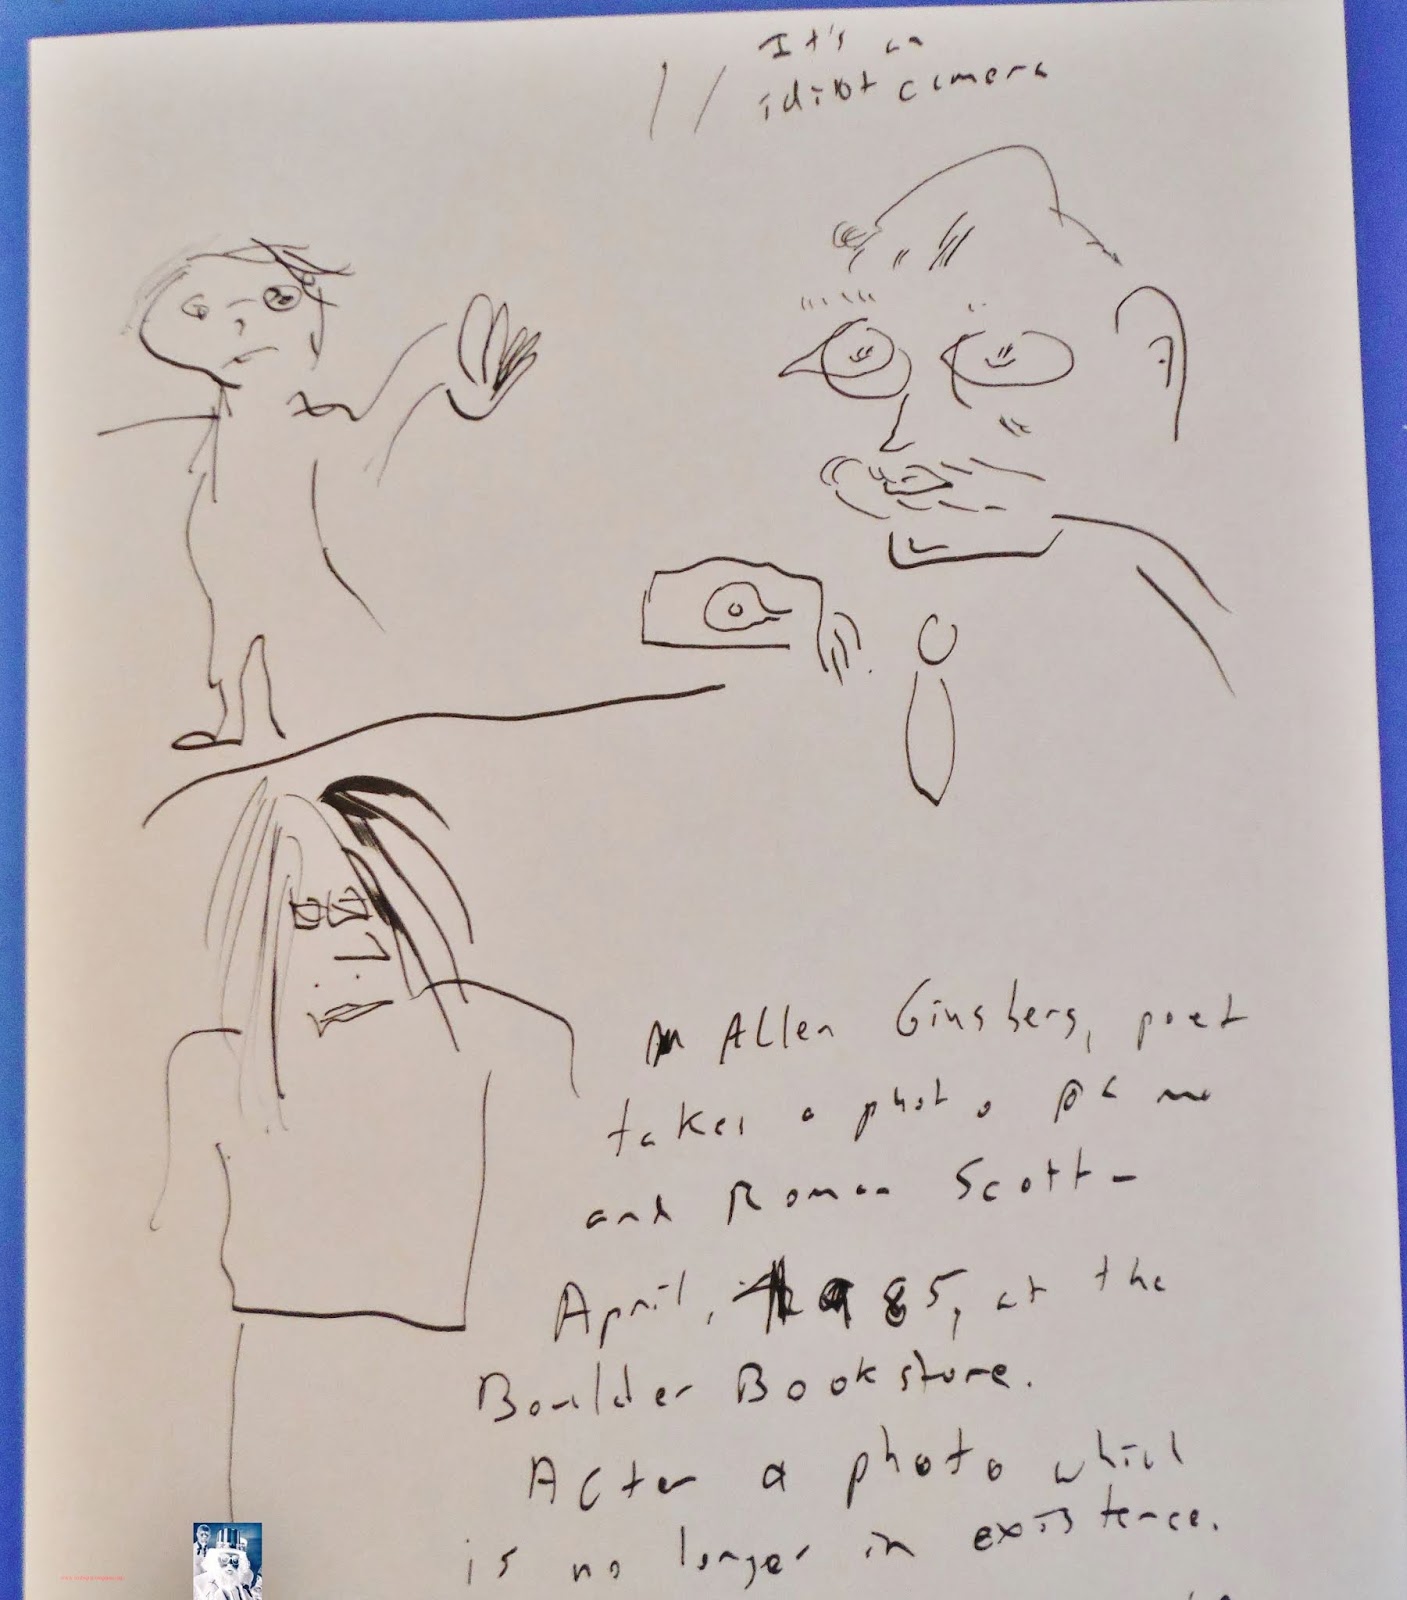 It's an
idiot camera
Allen Ginsberg, poet
takes a photo of me
and Roman Scott-
April, 85, at the
Boulder Bookstore.
After a photo which
is no longer in existence.